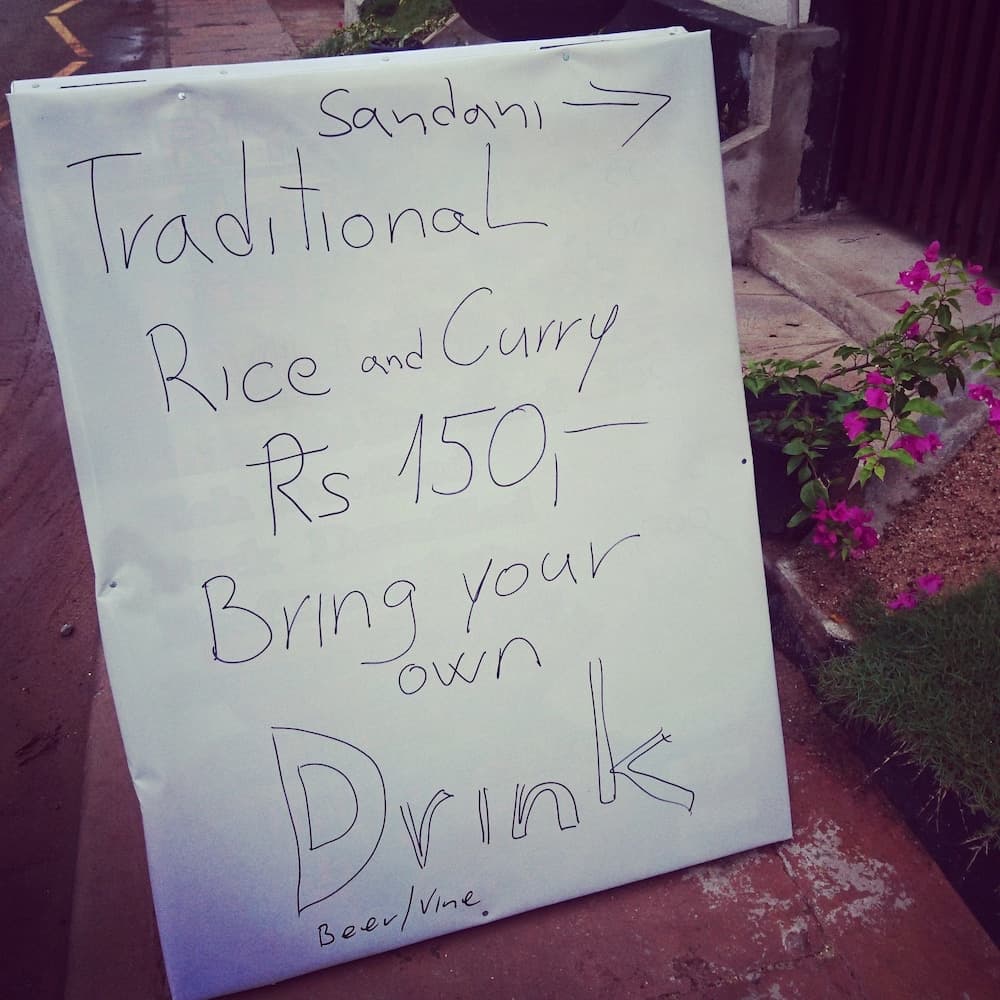 Sandani →
Traditional
Rice and Curry
Rs 150,-
Bring your
own
Drink
Beer/Vine.